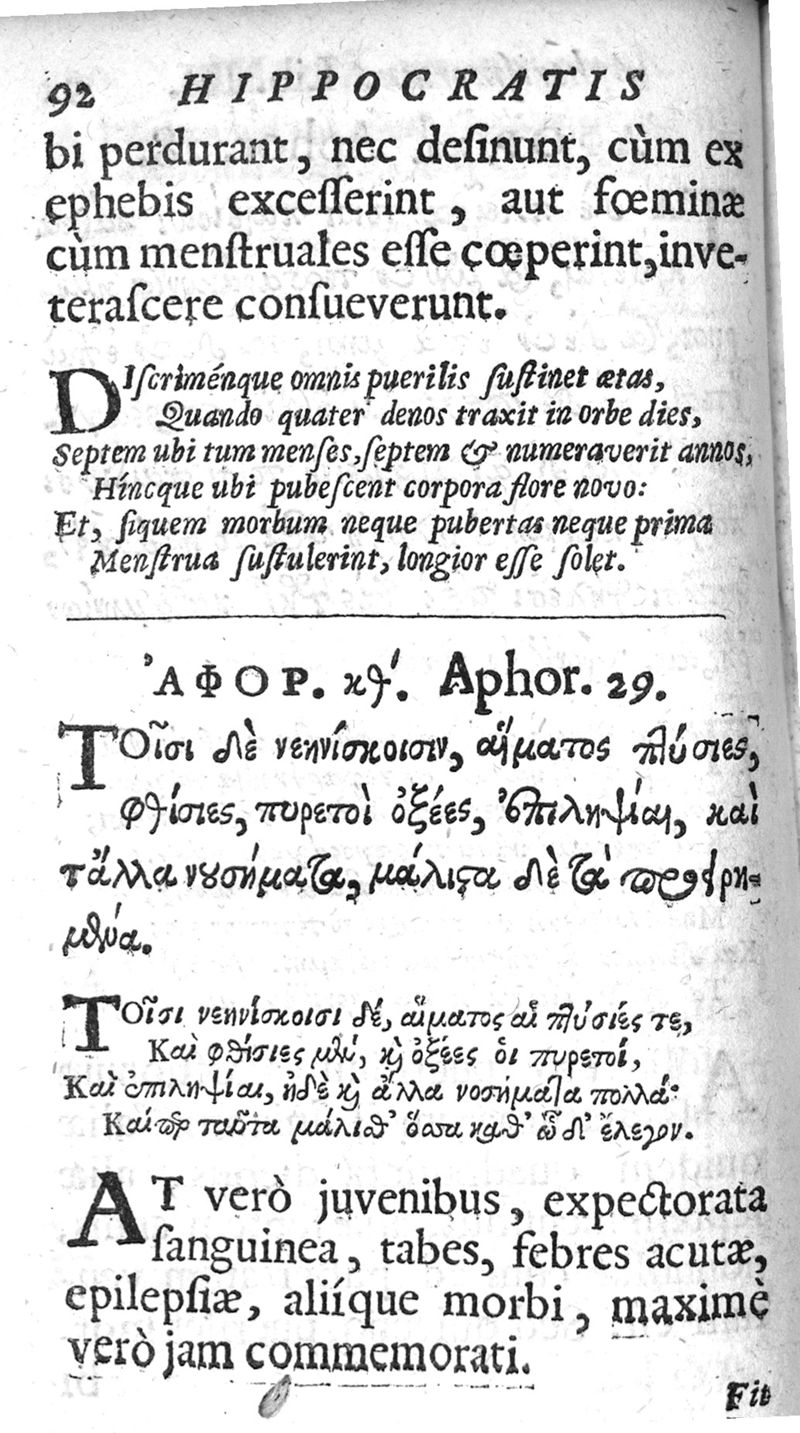 92 HIPPOCRATIS
bi perdurant, nec desinunt, cùm ex
ephebis excesserint, aut fœminæ
cùm menstruales esse cœperint, inve-
terascere consueverunt.
DIscriménque omnis puerilis sustinet ætas,
Quando quater denos traxit in orbe dies,
Septem ubi tum menses, septem & numeraverit annos,
Híncque ubi pubescent corpora flore novo:
Et, siquem morbum neque pubertas neque prima
Menstrua sustulerint, longior esse solet.
ἈΦΟΡ. κθ'. Aphor. 29.
ΤΟῖσι δὲ νεηνίσκοισιν, αἵματος πτύσιες,
φθίσιες, πυρετοὶ ὀξέες, ἐπιληψίαι, καὶ
τἄλλα νουσήματα, μάλιστα δὲ τὰ προειρη-
μένα.
ΤΟῖσι νεηνίσκοισι δέ, αἵματος αἱ πτύσιές τε,
Καὶ φθίσιες μὲν, καὶ ὀξέες οἱ πυρετοί,
Καὶ ἐπιληψίαι, ἠδὲ καὶ ἄλλα νοσήματα πολλά·
Καίπερ ταῦτα μάλισθ' ὅσσα καθ' ὧδ' ἔλεγον.
AT verò juvenibus, expectorata
sanguinea, tabes, febres acutæ,
epilepsiæ, aliíque morbi, maximè
verò jam commemorati.
Fit